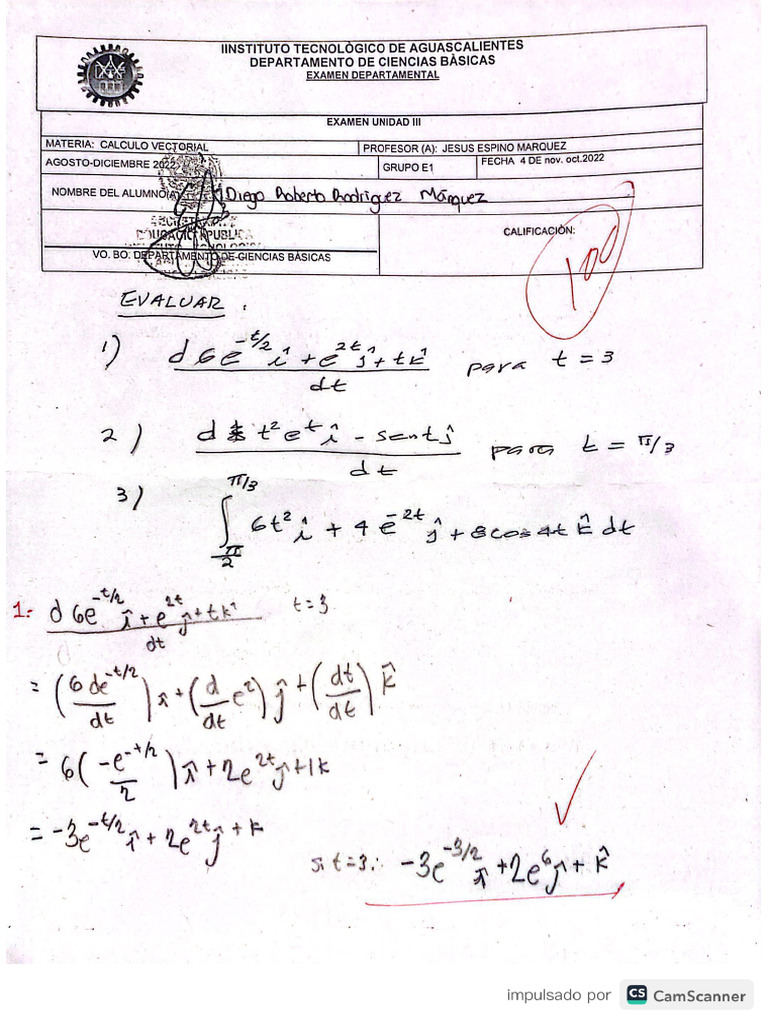 IINSTITUTO TECNOLÒGICO DE AGUASCALIENTES
DEPARTAMENTO DE CIENCIAS BÀSICAS
EXAMEN DEPARTAMENTAL
EXAMEN UNIDAD III
MATERIA: CALCULO VECTORIAL
PROFESOR (A): JESUS ESPINO MARQUEZ
AGOSTO-DICIEMBRE 2022
GRUPO E1
FECHA 4 DE nov. oct.2022
NOMBRE DEL ALUMNO(A) Diego Roberto Rodríguez Márquez
CALIFICACIÓN:
100
VO. BO. DEPARTAMENTO DE CIENCIAS BÁSICAS
EVALUAR.
1) d 6e^{-t/2} î + e^{2t} ĵ + t k̂ / dt para t = 3
2) d t² e^t î - sen t ĵ / dt para t = π/3
3) ∫_{π/2}^{π/3} 6t² î + 4 e^{-2t} ĵ + 8 cos 4t k̂ dt
1.- d 6e^{-t/2} î + e^{2t} ĵ + t k̂ / dt t = 3
= (6 de^{-t/2} / dt) î + (d/dt e²) ĵ + (dt/dt) k̂
= 6(-e^{-t/2} / 2) î + 2e^{2t} ĵ + 1k
= -3e^{-t/2} î + 2e^{2t} ĵ + k
si t=3: -3e^{-3/2} î + 2e^6 ĵ + k̂
impulsado por CS CamScanner